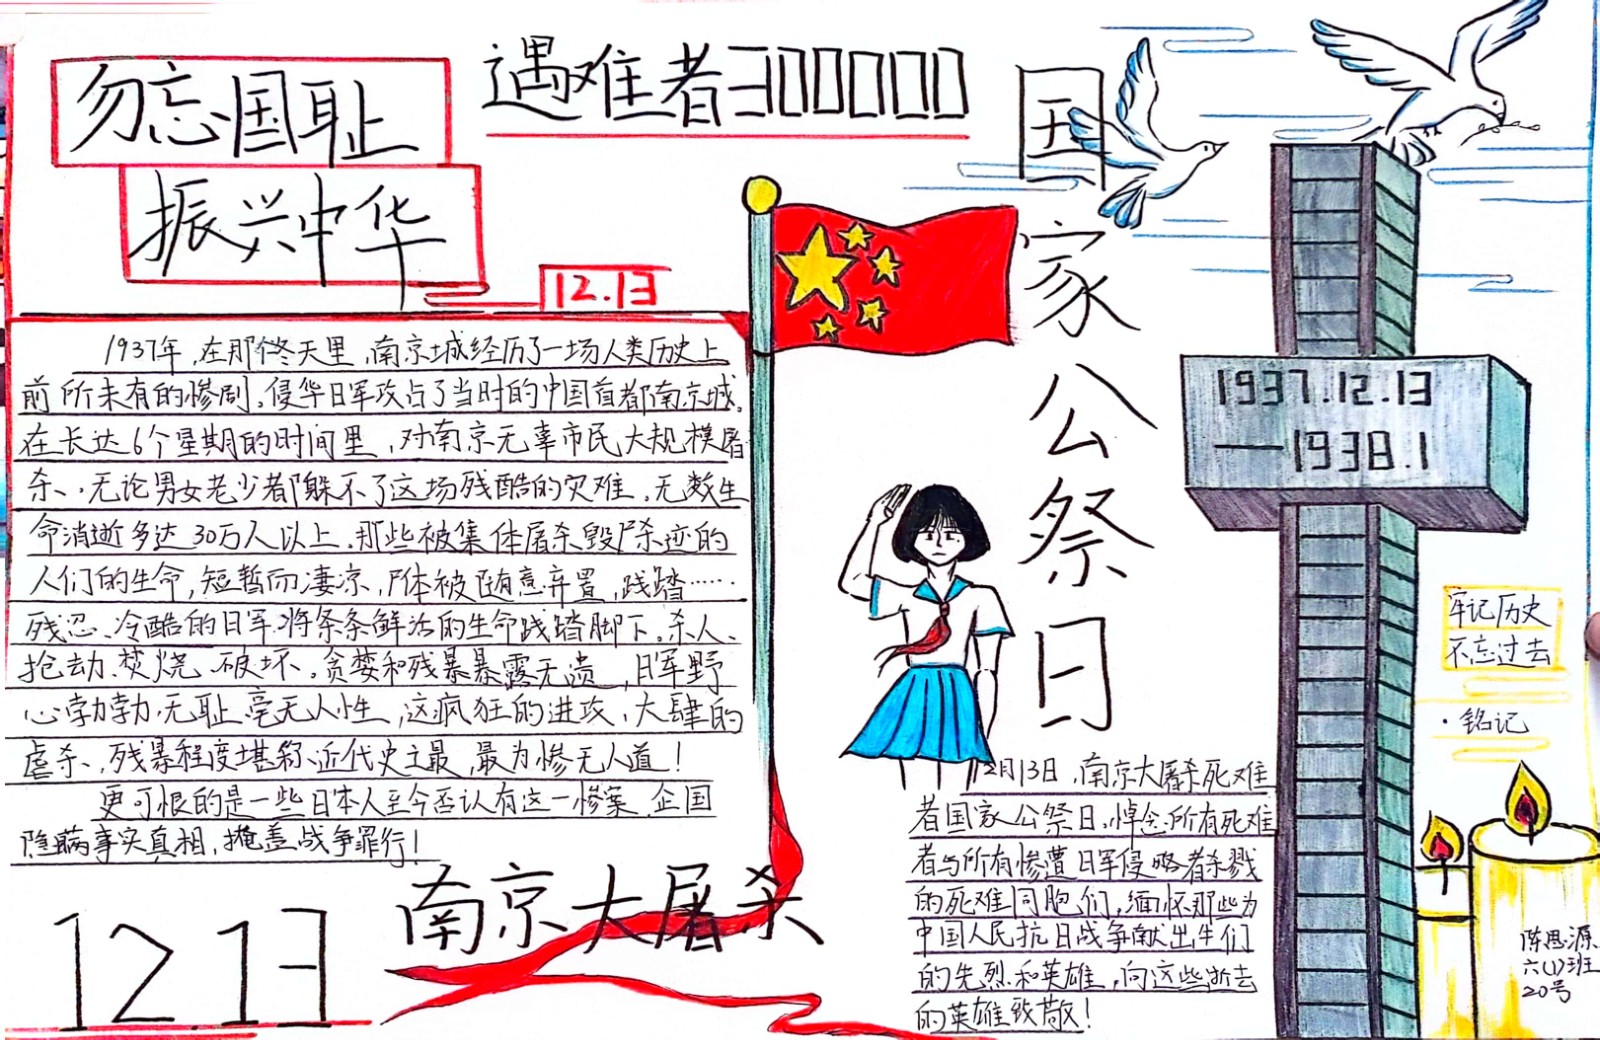 勿忘国耻
振兴中华
遇难者300000
12.13
国家公祭日
1937年,在那个冬天里,南京城经历了一场人类历史上
前所未有的惨剧。侵华日军攻占了当时的中国首都南京城。
在长达6个星期的时间里,对南京无辜市民大规模屠
杀、无论男女老少都躲不了这场残酷的灾难。无数生
命消逝多达30万人以上。那些被集体屠杀毁尸杀迹的
人们的生命,短暂而凄凉,尸体被随意弃置,践踏……
残忍、冷酷的日军将条条鲜活的生命践踏脚下。杀人、
抢劫、焚烧、破坏。贪婪和残暴暴露无遗,日军野
心勃勃,无耻、毫无人性,这疯狂的进攻、大肆的
虐杀、残暴程度堪称近代史上最,最为惨无人道!
更可恨的是一些日本人至今否认有这一惨案,企图
隐瞒事实真相,掩盖战争罪行!
12.13
南京大屠杀
2月13日,南京大屠杀死难
者国家公祭日,悼念所有死难
者与所有惨遭日军侵略者杀戮
的死难同胞们,缅怀那些为
中国人民抗日战争献出生们
的先烈和英雄,向这些逝去
的英雄致敬!
1937.12.13
—1938.1
牢记历史
不忘过去
·铭记
陈思源
六(1)班
20号